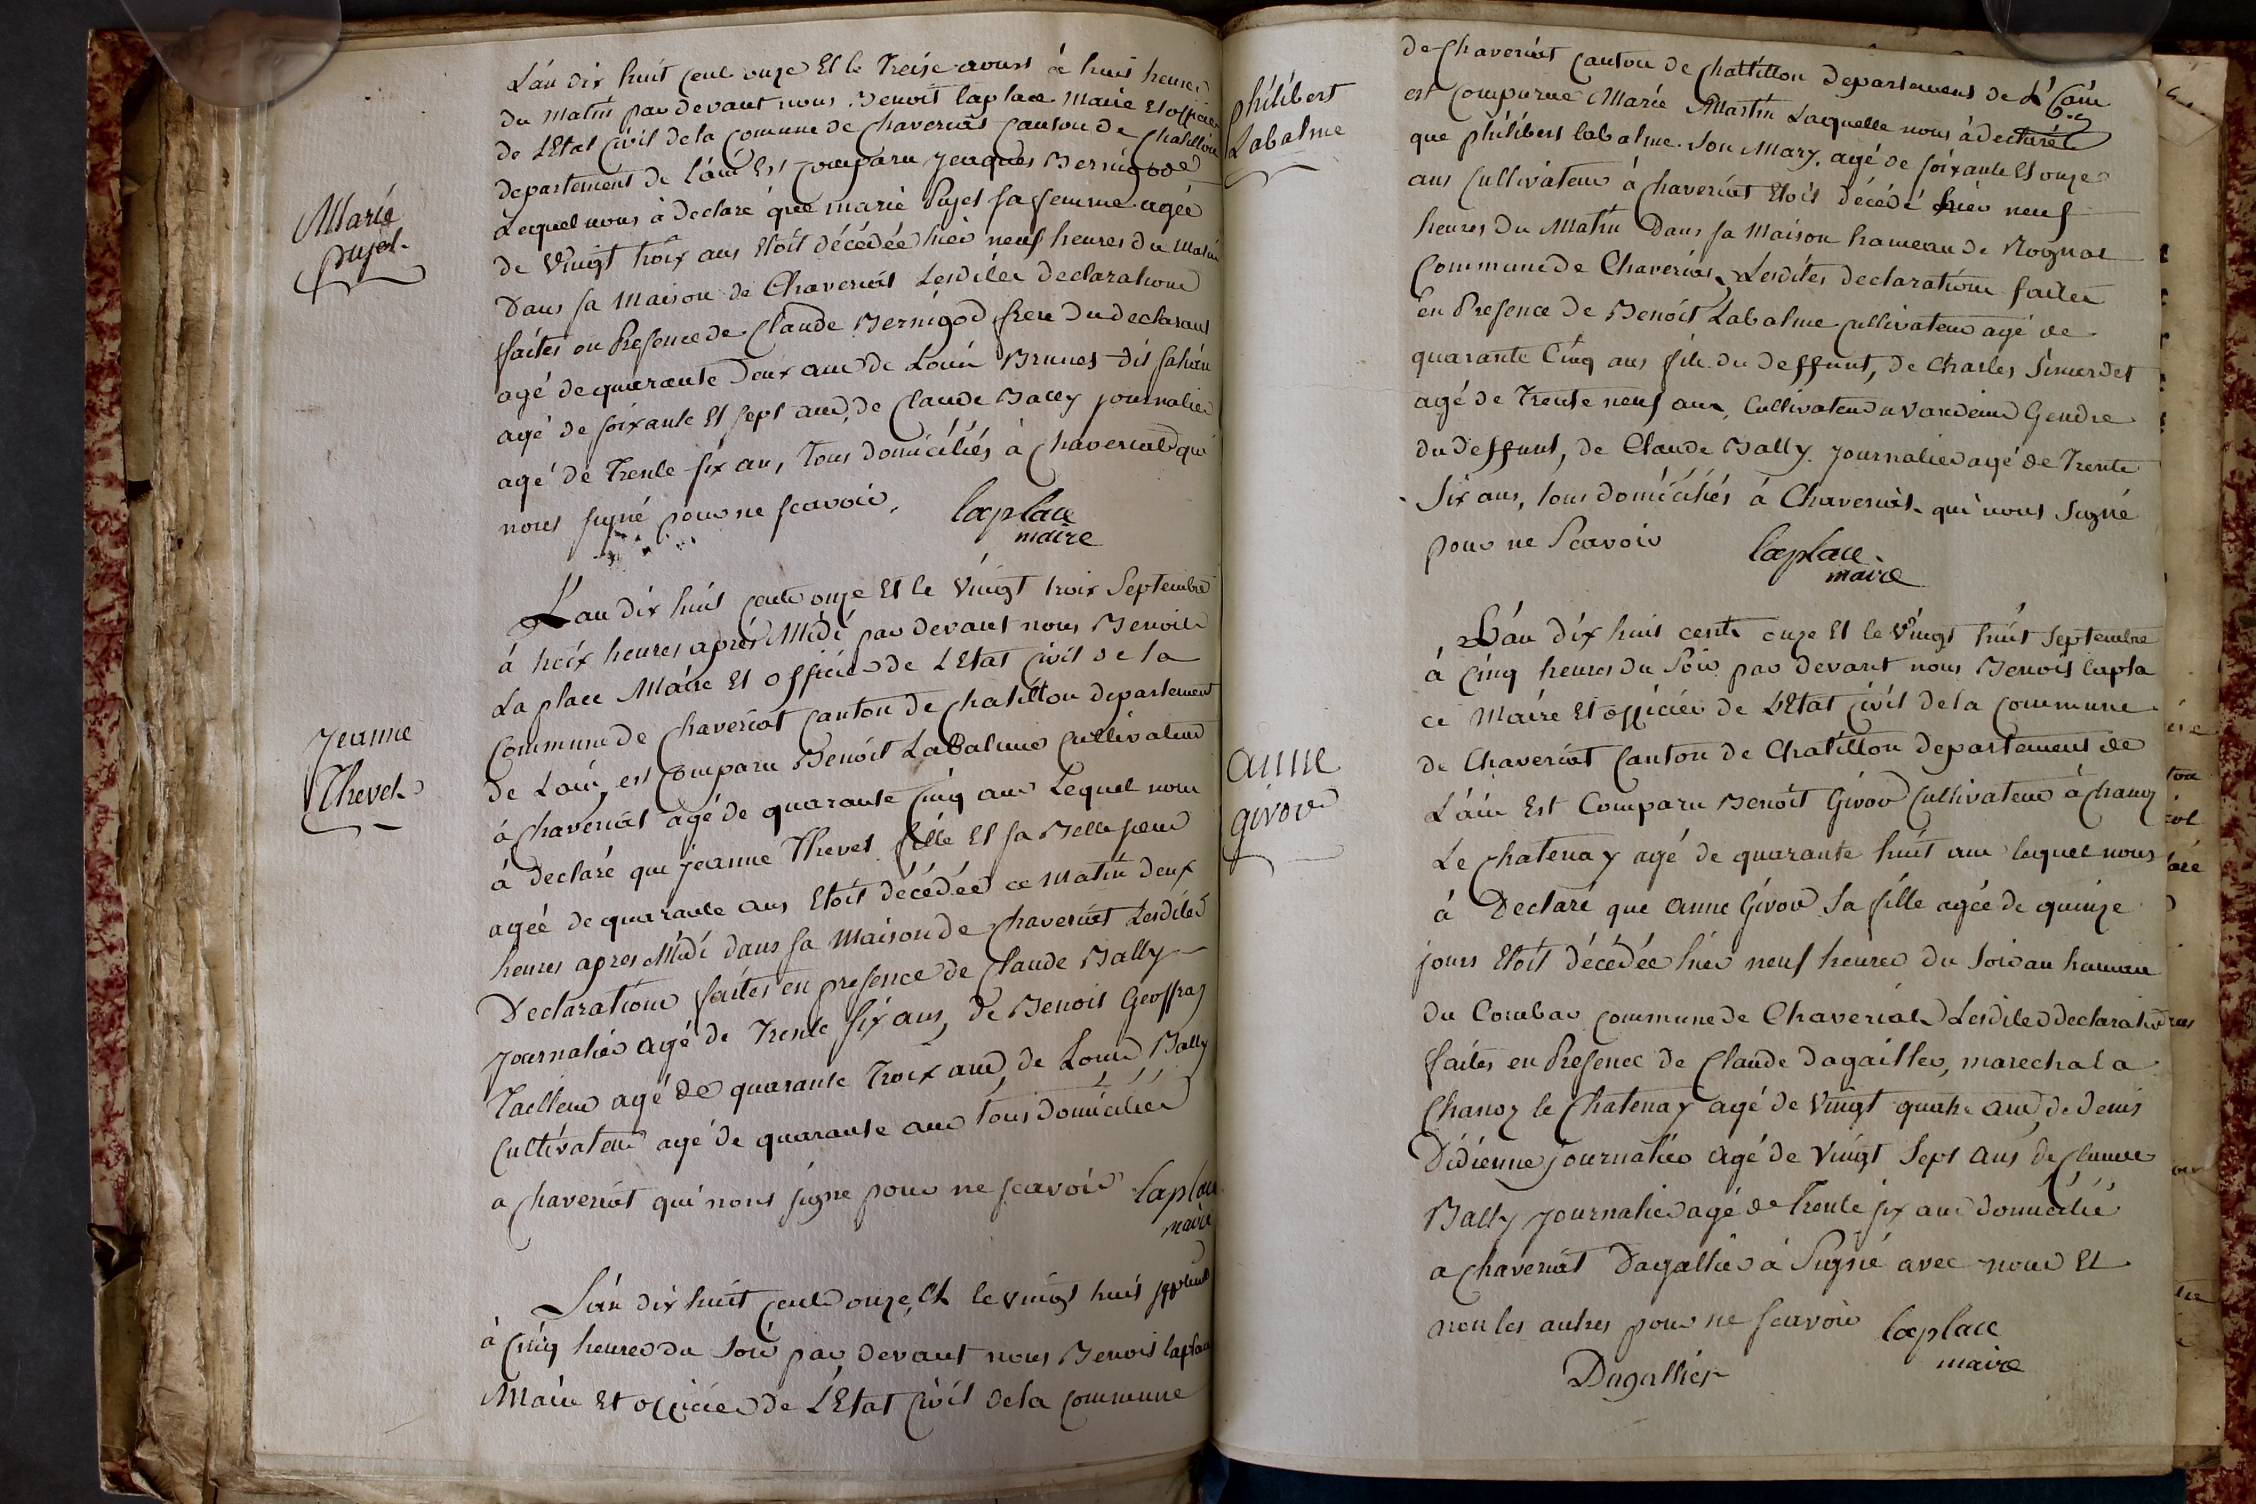 L'an dix huit cent onze Et le Treise aoust à huit heures
du matin par devant nous Benoit laplace Maire Et officier
de L'Etat Civil de la Comune de Chaveriat Canton de Chatillon
departement de L'ain Est comparu Jeaques Bernigod
Lequel nous à declaré que marie Pujet sa femme agée
de Vingt troix ans Etoit décédée hier neuf heures du Matin
Dans sa Maison de Chaveriat Lesdites declarations
faites en Presence de Claude Bernigod frere du declarant
agé de quarante Deux ans de Louis Brunet dit
agé de soixante Et sept ans, de Claude Bally journalier
agé de Trente six ans, Tous domiciliés à Chaveriat qui
nont signé pour ne scavoir.
laplace
maire
Marie
pujet
L'an dix huit cents onze Et le Vingt troix Septembre
à troix heures après Midi par devant nous Benoit
La place Maire Et officier de L'Etat Civil de la
Commune de Chaveriat Canton de Chatillon departement
de Lain, est Comparu Benoit LaBalme Cultivateur
à Chaveriat agé de quarante Cinq ans Lequel nous
à declaré que jeanne Thevet fille Et sa Belle soeur
agée de quarante ans Etoit décédée ce matin deux
heures apres Midi dans sa Maison de Chaveriat Lesdites
Declarations faites en presence de Claude Bally
journalier agé de Trente six ans, de Benoit Geoffray
Tailleur agé de quarante Troix ans, de Louis Bally
Cultivateur agé de quarante ans Tous Domiciliés
a Chaveriat qui nont signe pour ne scavoir
laplace
maire
Jeanne
Thevet
L'an dix huit cents onze, Et le vingt huit septembre
à Cinq heures du Soir par devant nous Benoit laplace
Maire Et officier de L'Etat Civil de la Commune
philibert
Labalme
de Chaveriat Canton de Chattillon departement de L'ain
est Comparue Marie Martin Laquelle nous à declaré
que philibert labalme. Son Mary, agé de soixante Et onze
ans Cultivateur à Chaveriat Etoit décédé hier neuf
heures du Matin Dans sa Maison hameau de Rognat
Commune de Chaveriat, Lesdites declarations faites
en Presence de Benoit Labalme Cultivateur agé de
quarante Cinq ans fils du deffunt, de Charles Simerdet
agé de Trente neuf ans, Cultivateur a vandeins Gendre
du deffunt, de Claude Bally journalier agé de Trente
Six ans, tous domiciliés à Chaveriat, qui nont Signé
pour ne Scavoir
laplace
maire
L'an dix huit cents onze Et le Vingt huit Septembre
à Cinq heures du Soir par devant nous Benoit lapla
ce Maire Et officier de L'Etat Civil de la Commune
de Chaveriat Canton de Chatillon departement de
L'ain Est Comparu Benoit Givor Cultivateur à Chanoz
Le Chatenay agé de quarante huit ans lequel nous
à Declaré que anne Givor Sa fille agée de quinze
jours Etoit décédée hier neuf heures du Soir au hameau
du Combar commune de Chaveriat Lesdites declarations
faites en Presence de Claude Dagaillier, marechal a
Chanoz le Chatenay agé de Vingt quatre ans, de denis
Didienne journalier agé de Vingt Sept ans, de Claude
Bally journalier agé de Trente six ans domicilié
a Chaveriat Dagallier à Signé avec nous Et
non les autres pour ne scavoir
laplace
maire
Dagallier
anne
givor